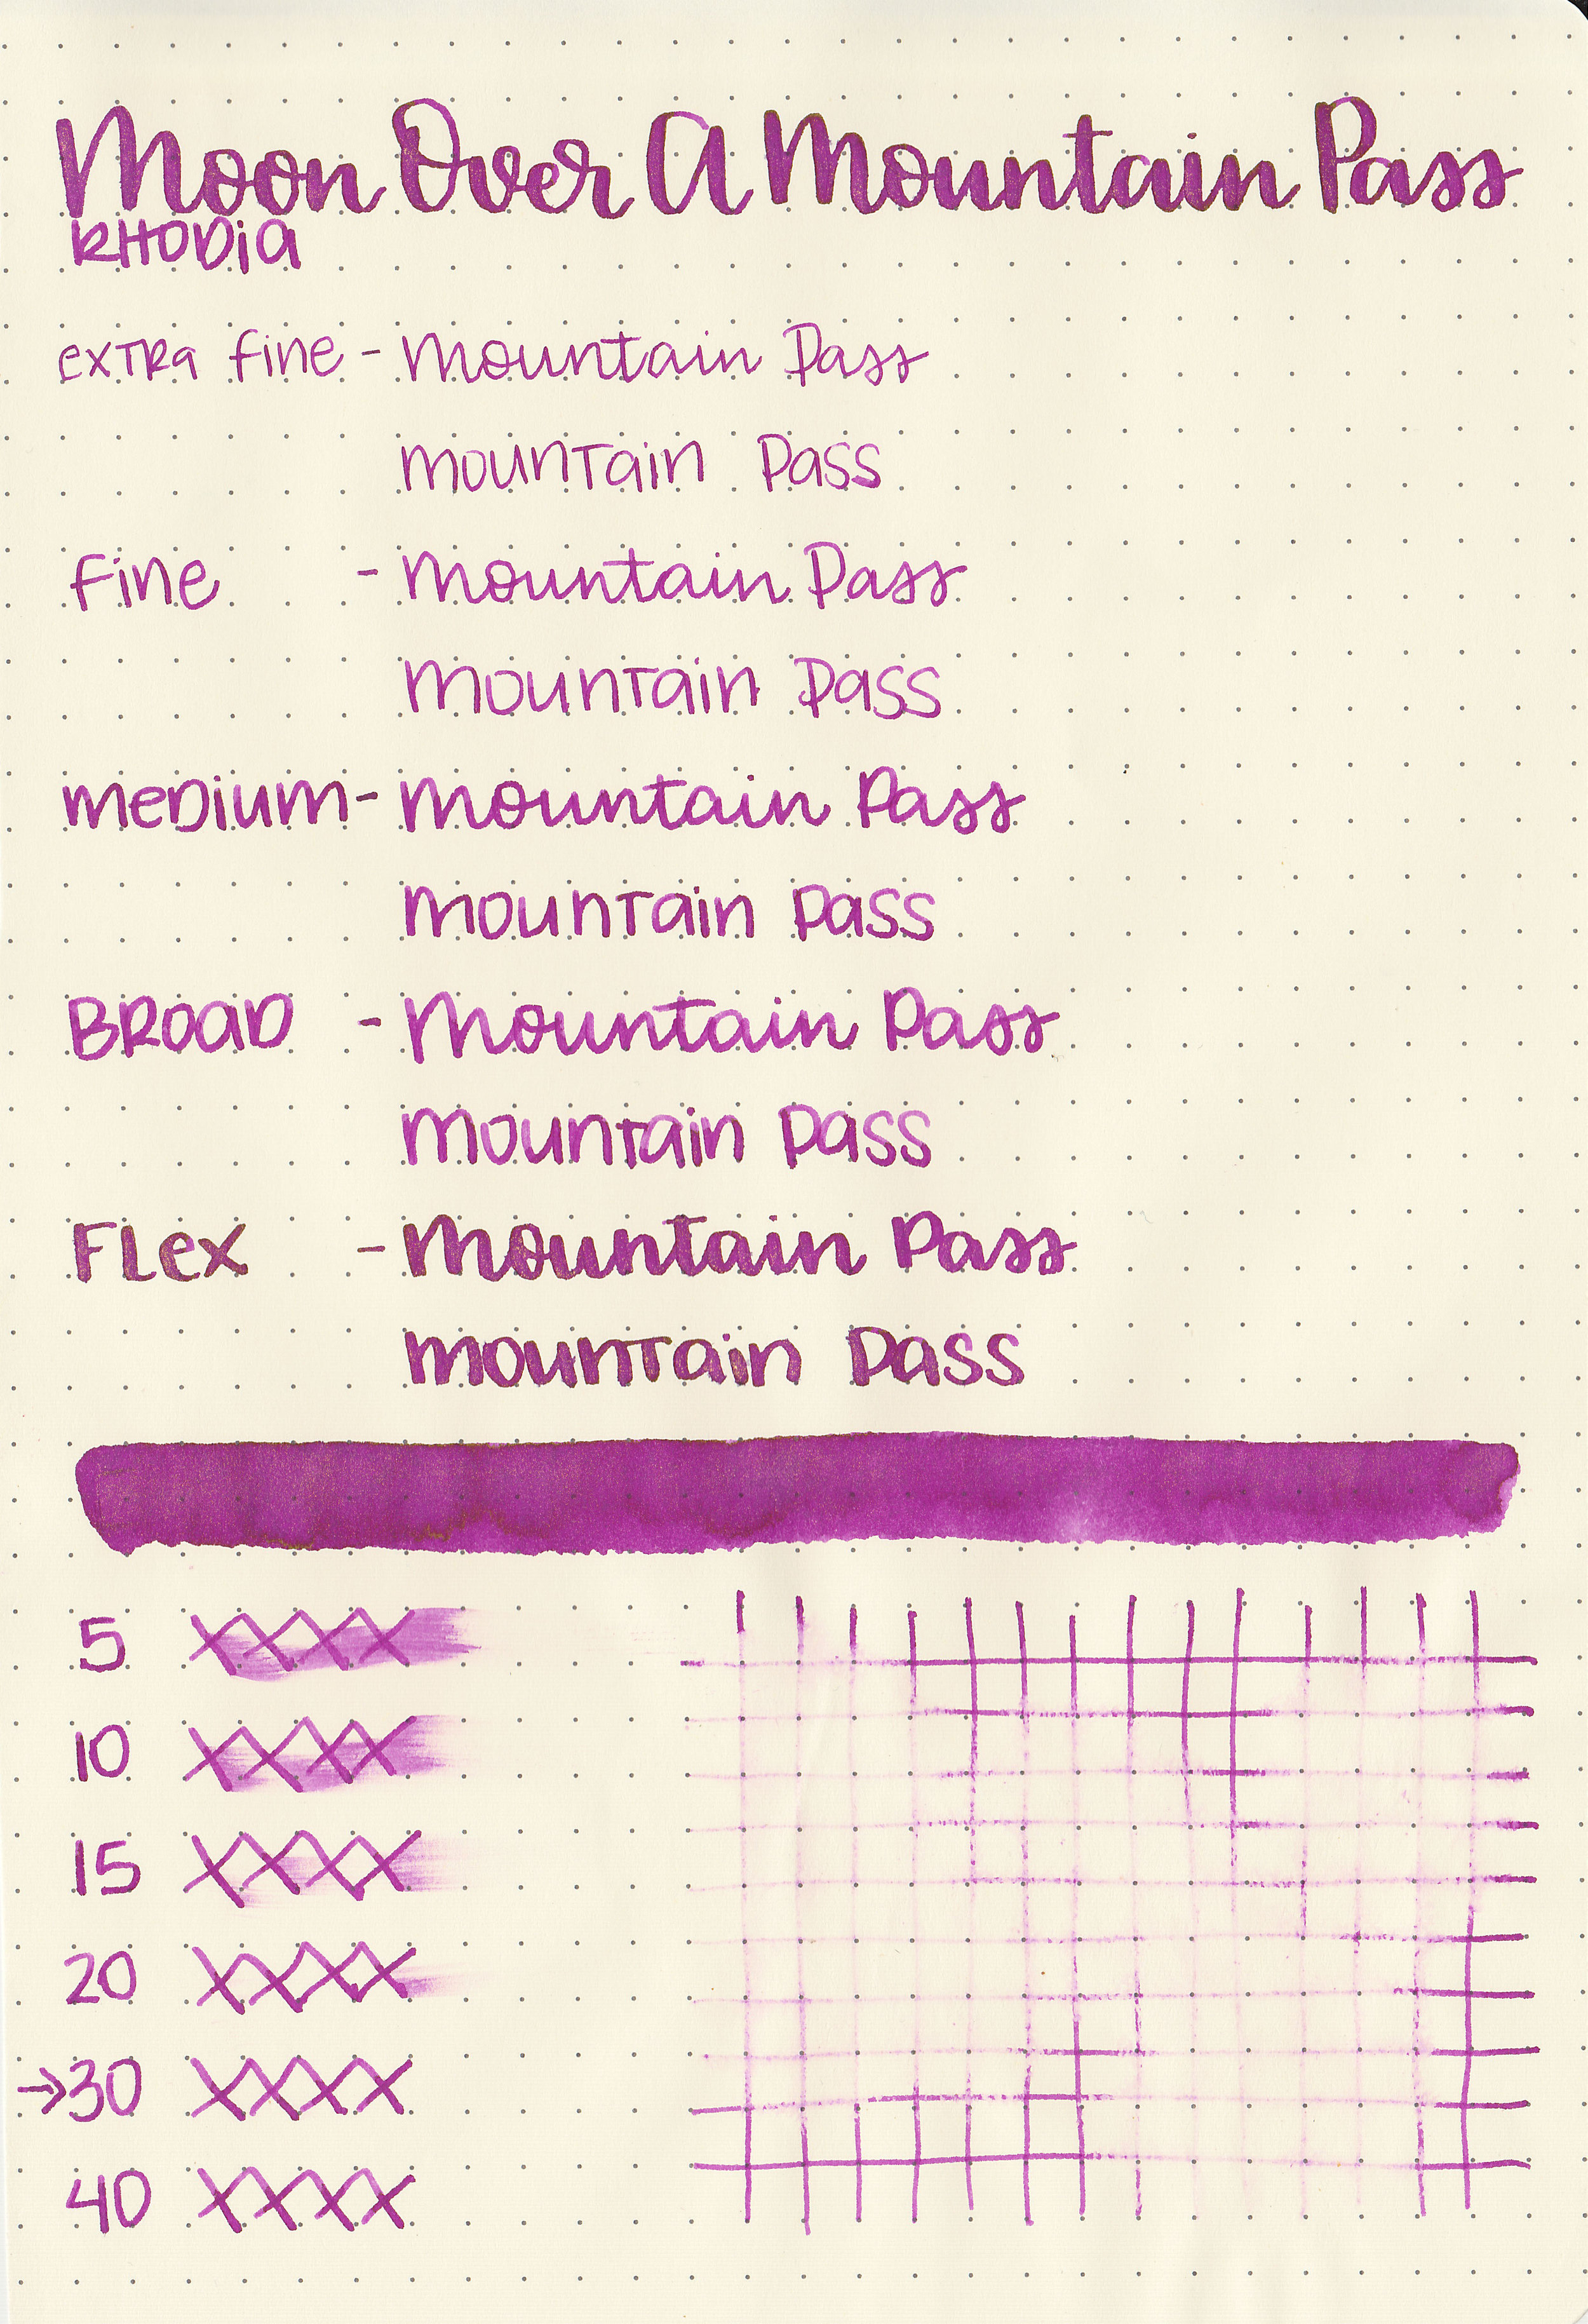 Moon Over A Mountain Pass
RHODiA
exTRa fine - Mountain Pass
mounTain Pass
Fine - Mountain Pass
mounTain Pass
meDium - Mountain Pass
mounTain Pass
BROaD - Mountain Pass
mountain Pass
FLex - Mountain Pass
mounTain Pass
5 XXXX
10 XXXX
15 XXXX
20 XXXX
→30 XXXX
40 XXXX